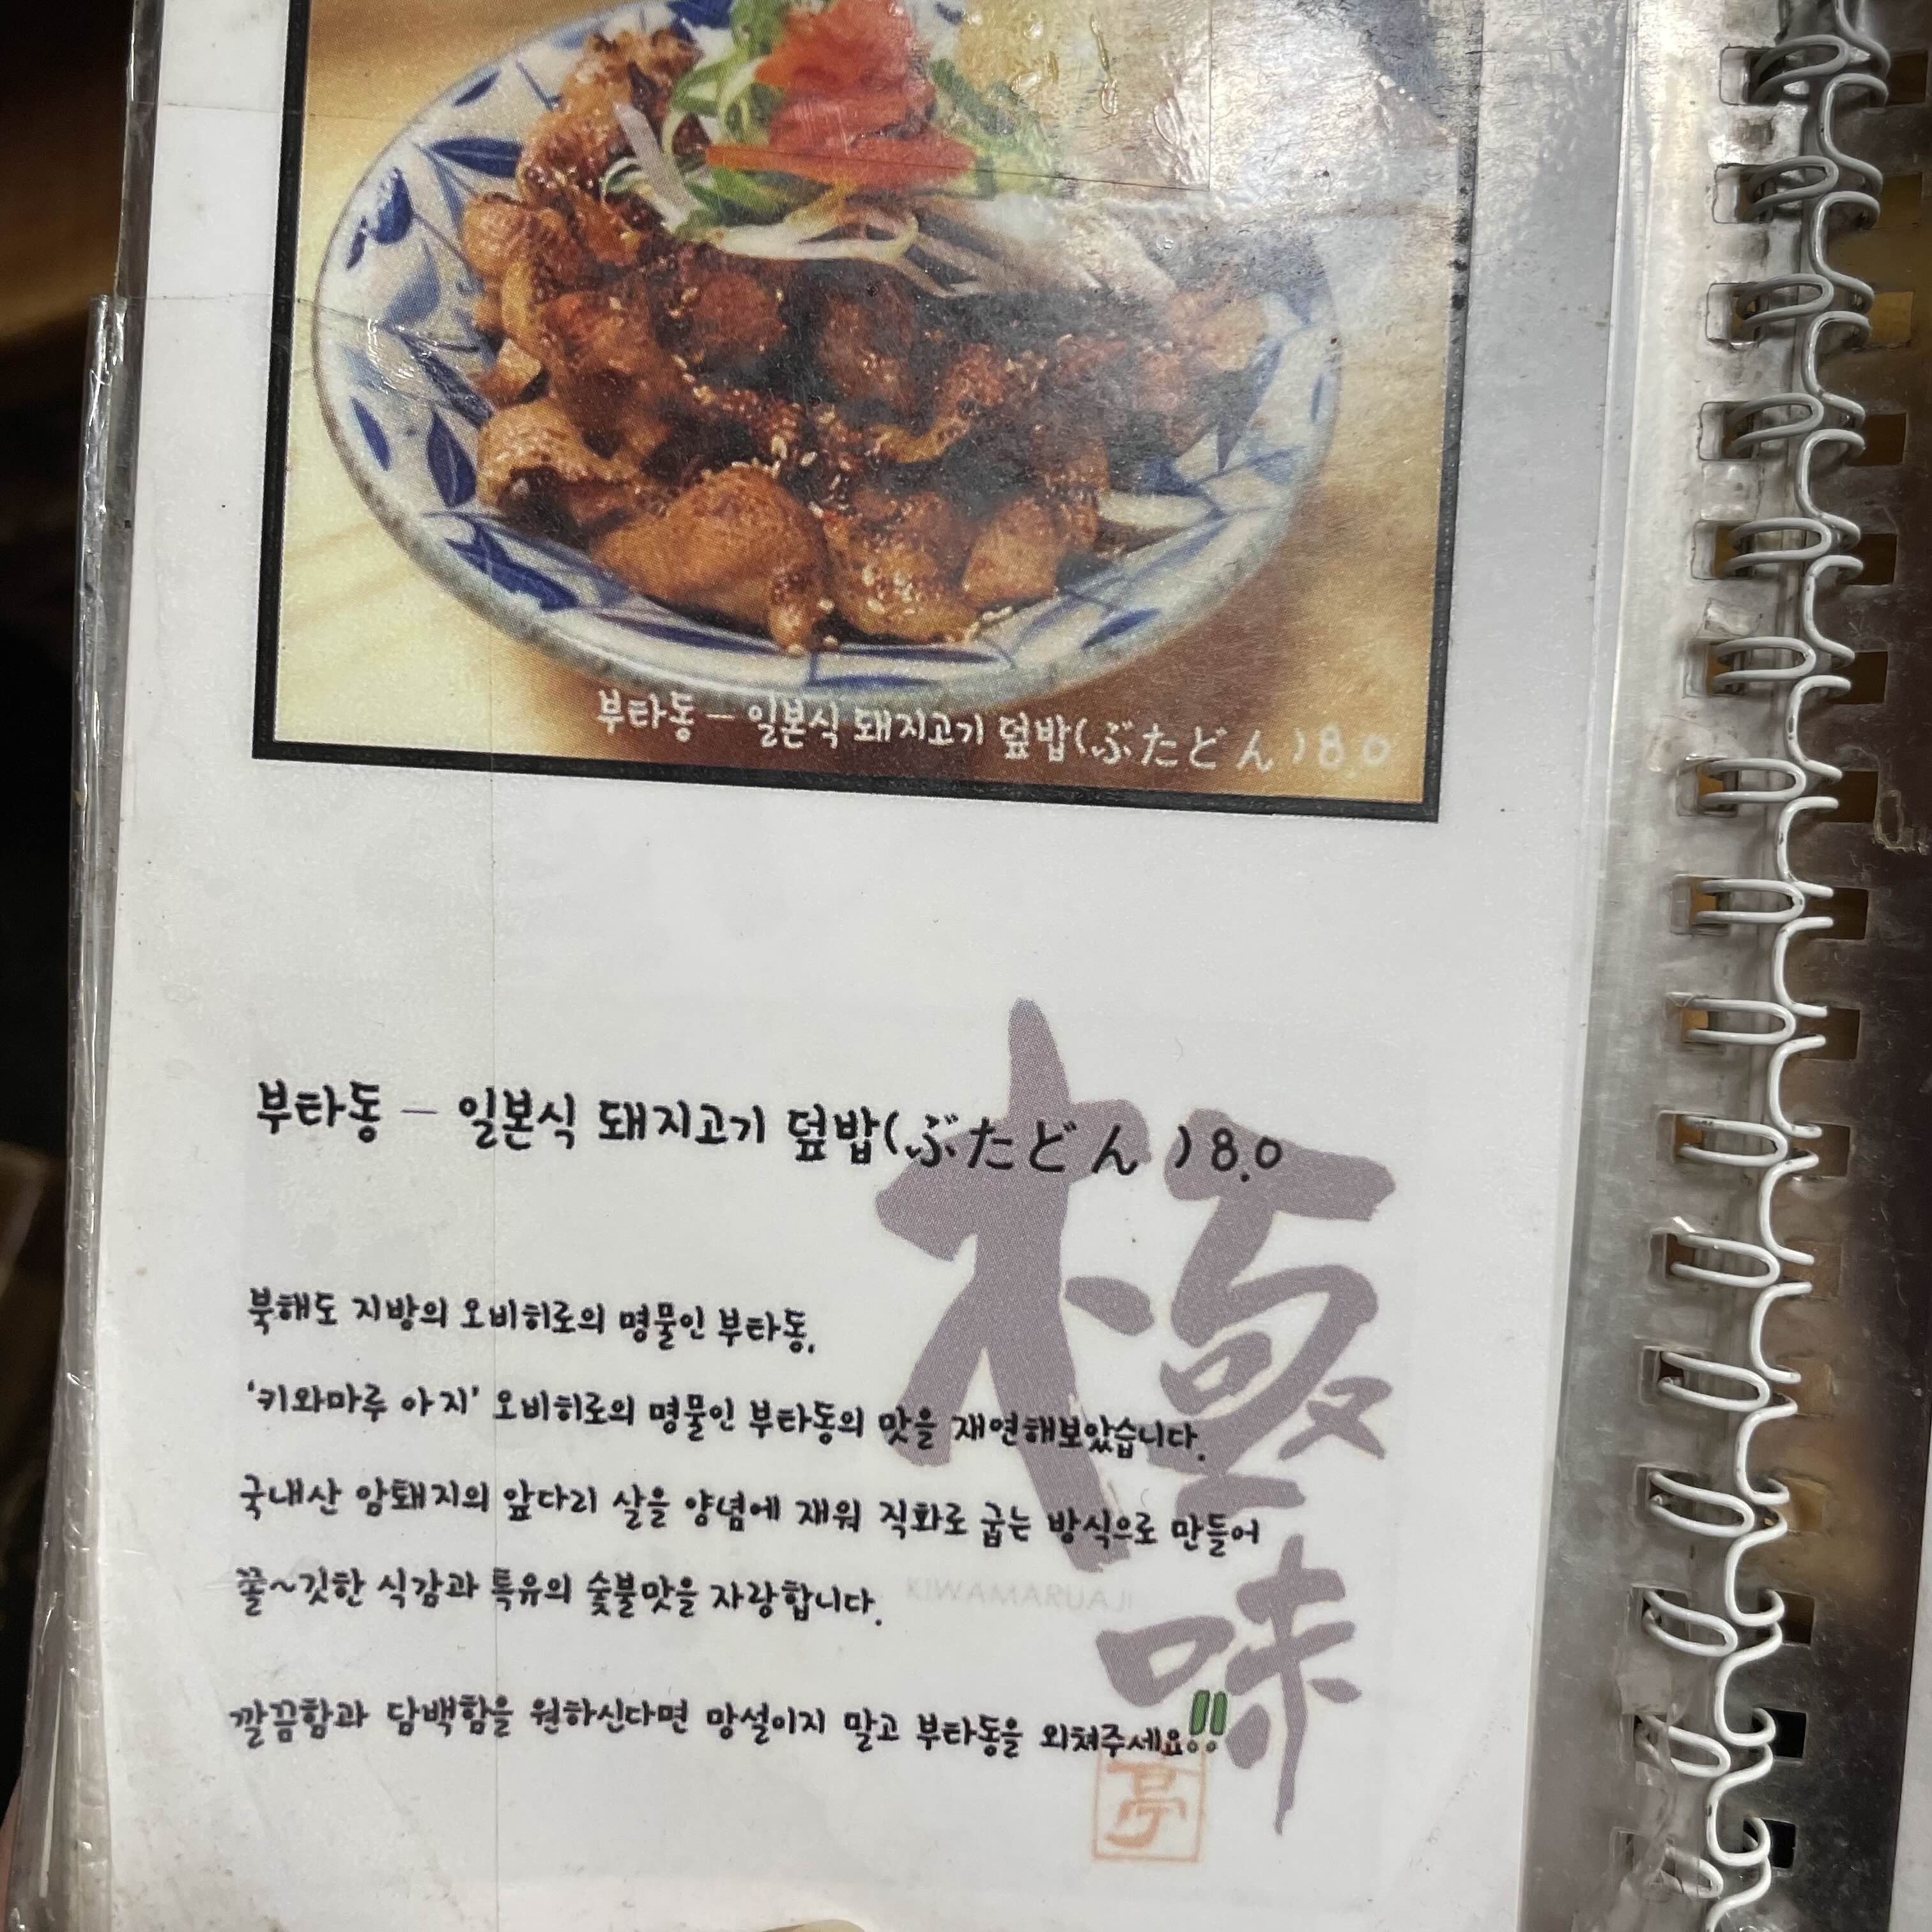 부타동 - 일본식 돼지고기 덮밥(ぶたどん)8.0
부타동 - 일본식 돼지고기 덮밥(ぶたどん)8.0
북해도 지방의 오비히로의 명물인 부타동.
'키와마루 아지' 오비히로의 명물인 부타동의 맛을 재연해보았습니다.
국내산 암퇘지의 앞다리 살을 양념에 재워 직화로 굽는 방식으로 만들어
꿀~깃한 식감과 특유의 숯불맛을 자랑합니다.
깔끔함과 담백함을 원하신다면 망설이지 말고 부타동을 외쳐주세요!!
極味
KIWAMARUAJI
亭